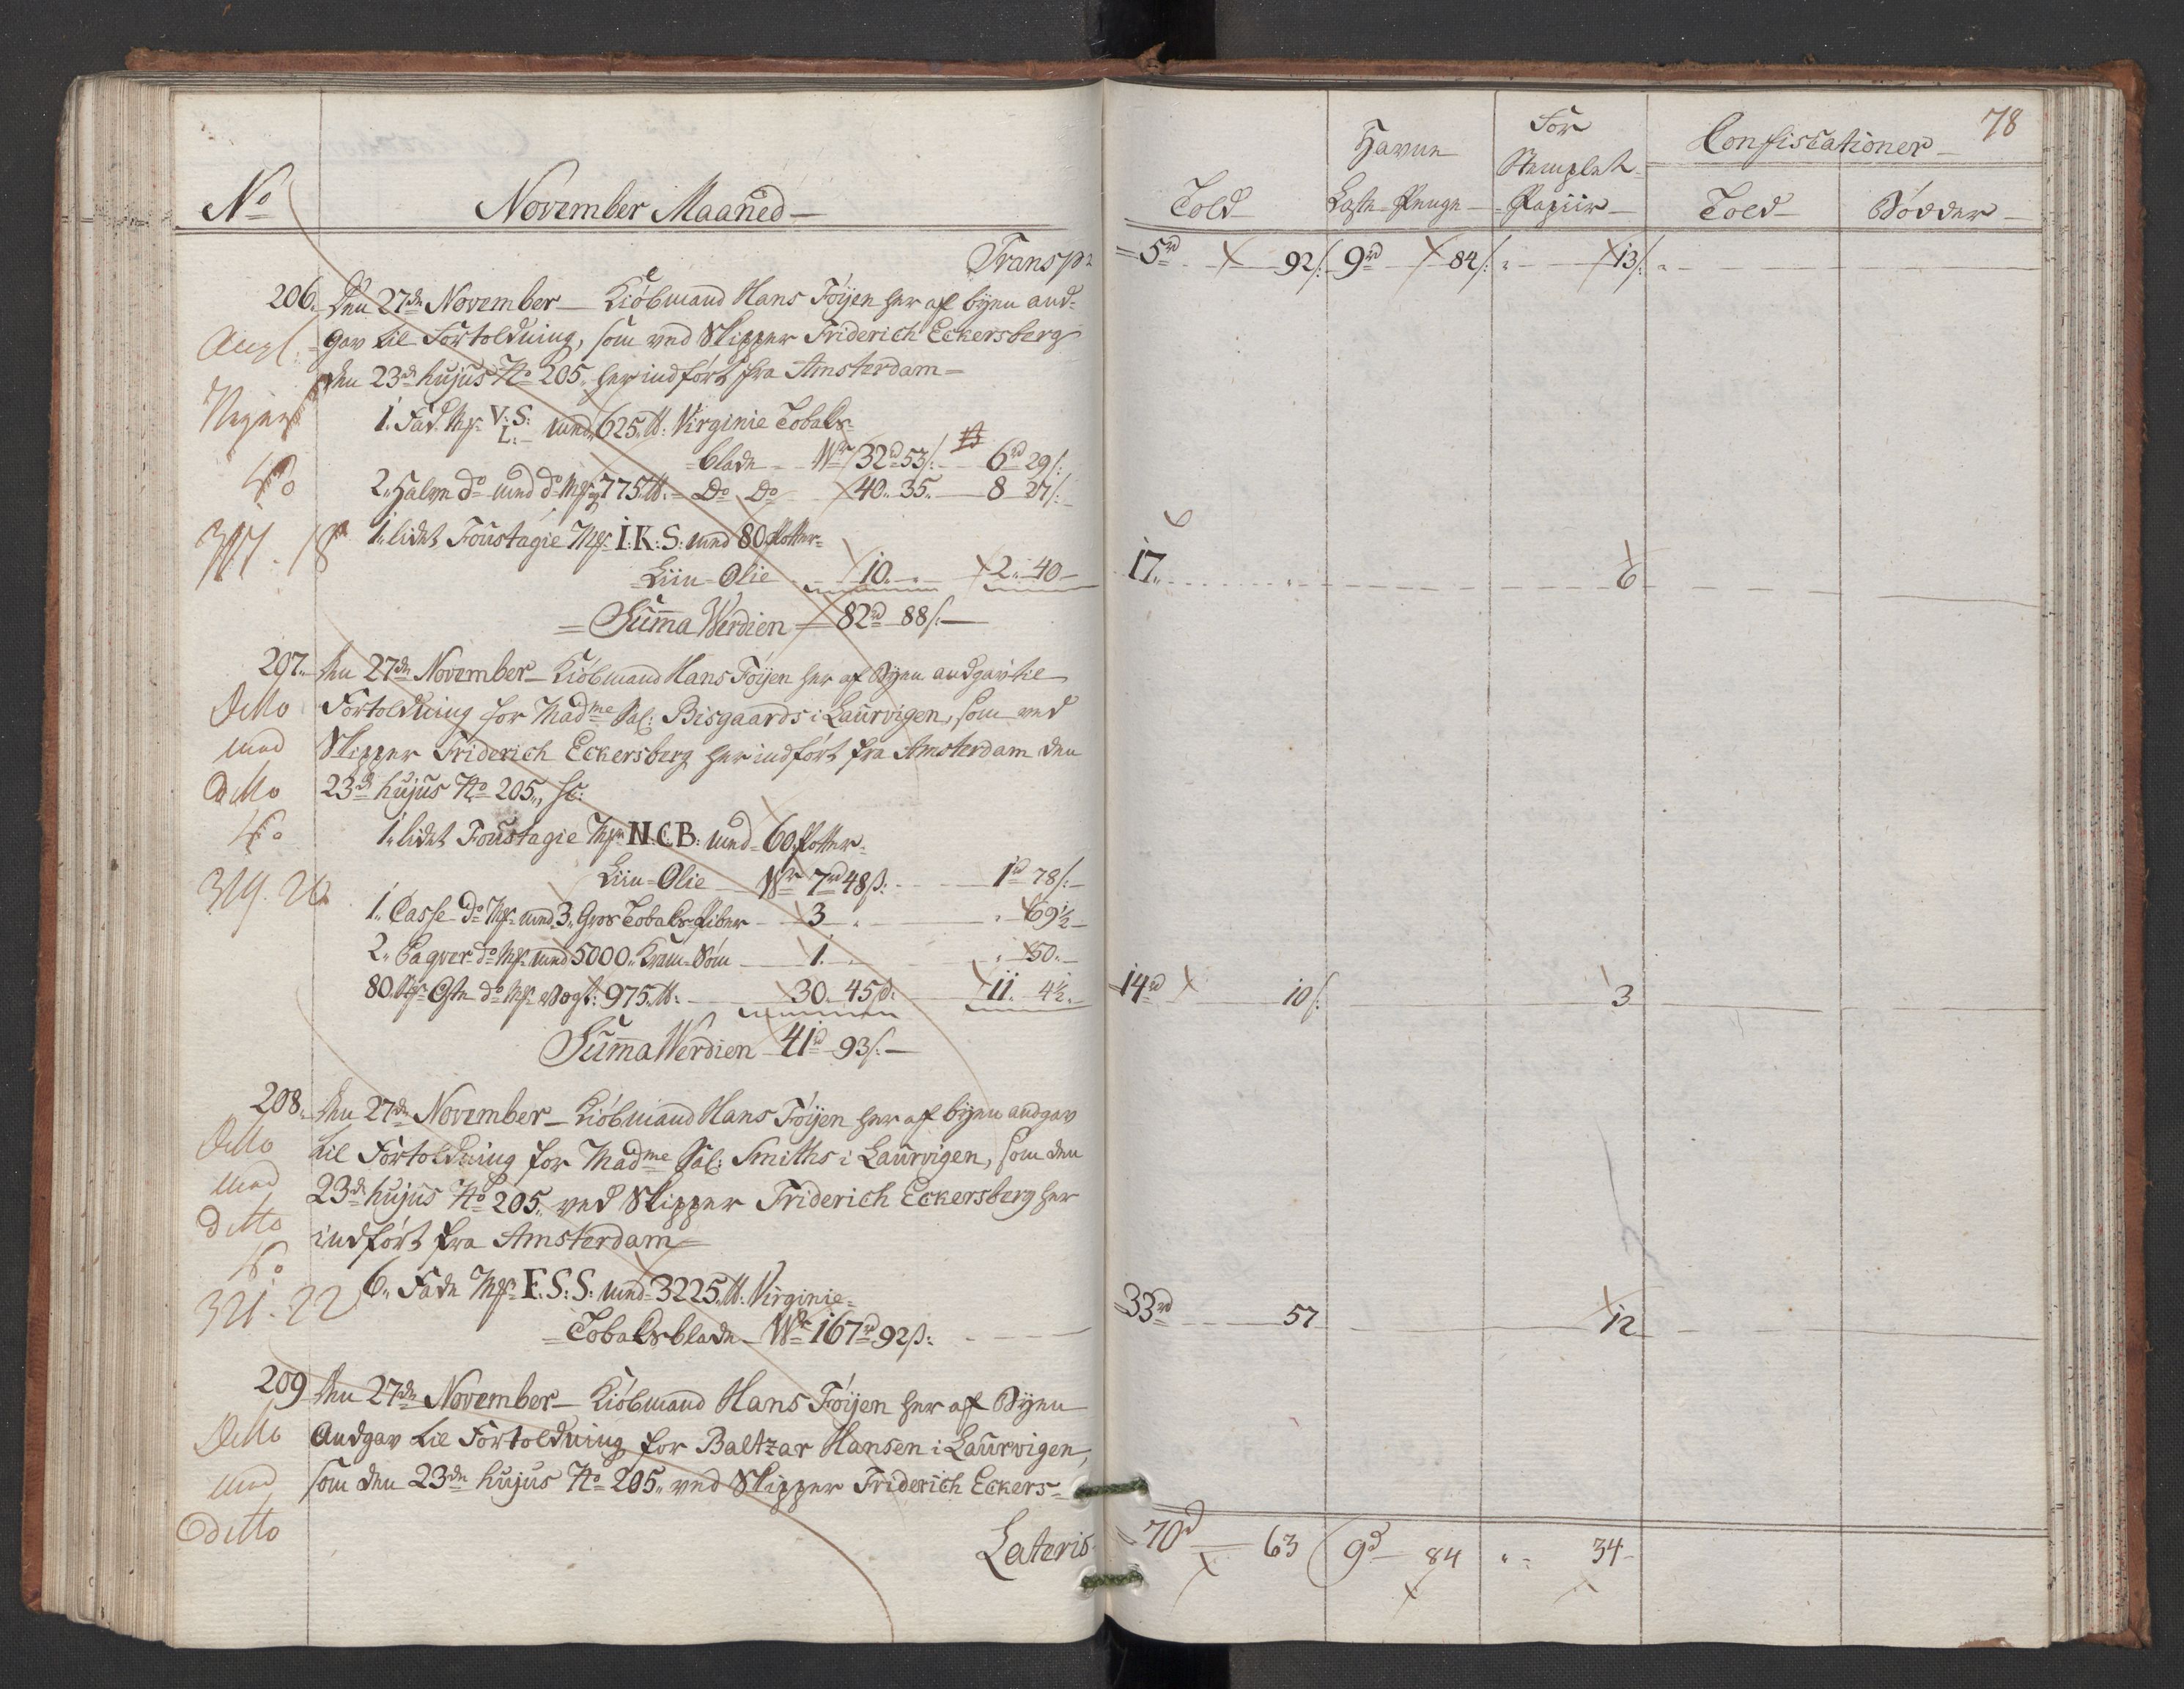 78
No
November Maaned
Told
Havne
Laste-Penge
For
Stemplet
Papiir
Confiscationer
Told
Bødder
Transp:
5rd 92/: 9rd 84/: „ 13/: „
206. Den 27de November Kiøbmand Hans Føijen her af byen and-
gav til Fortoldning, som ved Skipper Friderich Eckersberg
den 23de hujus No 205. her indført fra Amsterdam
1. Fad Mk: V:S: L: med 625 tt: Virginie Tobaks-
blade Wr 32rd 53/: 6rd 29/:
2. Halve do med do Mk: 775 tt: Do Do 40.. 35.. 8 27/:
1. lidet Foustagie Mk: I:K:S: med 80 Potter
Liin-Olie 10.. „ 2.. 40
17.. „ 6
Summa Werdien 82rd 88/:
317. 18
207. Den 27de November Kiøbmand Hans Føijen her af Byen andgav til
Ditto Fortoldning for Madme Sal: Bisgaards i Laurvigen, som ved
med Skipper Friderich Eckersberg her indført fra Amsterdam den
ditto 23de hujus No 205„ sc:
No 1. lidet Foustagie Mk: N.C.B: med 60 Potter
Liin-Olie Wr 7rd 48ß: 1rd 78/:
1. Casse do Mk: med 3. Gros Tobaks-Piber 3 „ „ 69½
2. Paqver do Mk: med 5000. Kram-Søm 1. „ „ 50.
80. Oste do Mk: Vegt: 975 tt: 30. 45ß: 11. 4½.
14rd 10/: 3
Summa Werdien 41rd 93/:
208. Den 27de November Kiøbmand Hans Føijen her af byen andgav
Ditto til Fortoldning for Madme Sal: Smiths i Laurvigen, som den
med 23de hujus No 205. ved Skipper Friderich Eckersberg her
ditto indført fra Amsterdam
No
321. 22 6. Fade Mk: F:S:S: med 3225 tt: Virginie
Tobaksblade Wr 167rd 92ß:
33rd 57 12
209 Den 27de November Kiøbmand Hans Føijen her af Byen
Ditto Andgav til Fortoldning for Baltzar Hansen i Laurvigen,
med som den 23de hujus No 205„ ved Skipper Friderich Eckers-
ditto
Lateris 70rd 63 9rd 84 „ 34